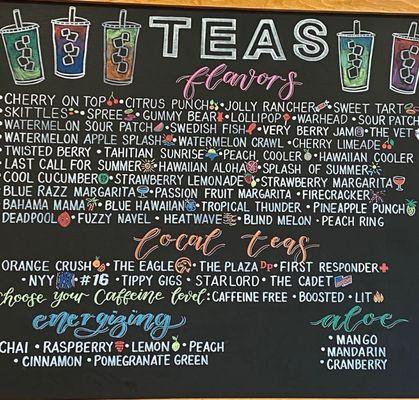 TEAS
flavors
CHERRY ON TOP • CITRUS PUNCH • JOLLY RANCHER • SWEET TART
SKITTLES • SPREE • GUMMY BEAR • LOLLIPOP • WARHEAD • SOUR PATCH
WATERMELON SOUR PATCH • SWEDISH FISH • VERY BERRY JAM • THE VET
WATERMELON APPLE SPLASH • WATERMELON CRAWL • CHERRY LIMEADE
TWISTED BERRY • TAHITIAN SUNRISE • PEACH COOLER • HAWAIIAN COOLER
LAST CALL FOR SUMMER • HAWAIIAN ALOHA • SPLASH OF SUMMER
COOL CUCUMBER • STRAWBERRY LEMONADE • STRAWBERRY MARGARITA
BLUE RAZZ MARGARITA • PASSION FRUIT MARGARITA • FIRECRACKER
BAHAMA MAMA • BLUE HAWAIIAN • TROPICAL THUNDER • PINEAPPLE PUNCH
DEADPOOL • FUZZY NAVEL • HEATWAVE • BLIND MELON • PEACH RING
Local teas
ORANGE CRUSH • THE EAGLE • THE PLAZA DP • FIRST RESPONDER
NYY • #16 • TIPPY GIGS • STARLORD • THE CADET
Choose your Caffeine level: CAFFEINE FREE • BOOSTED • LIT
energizing
CHAI • RASPBERRY • LEMON • PEACH
• CINNAMON • POMEGRANATE GREEN
aloe
• MANGO
MANDARIN
CRANBERRY